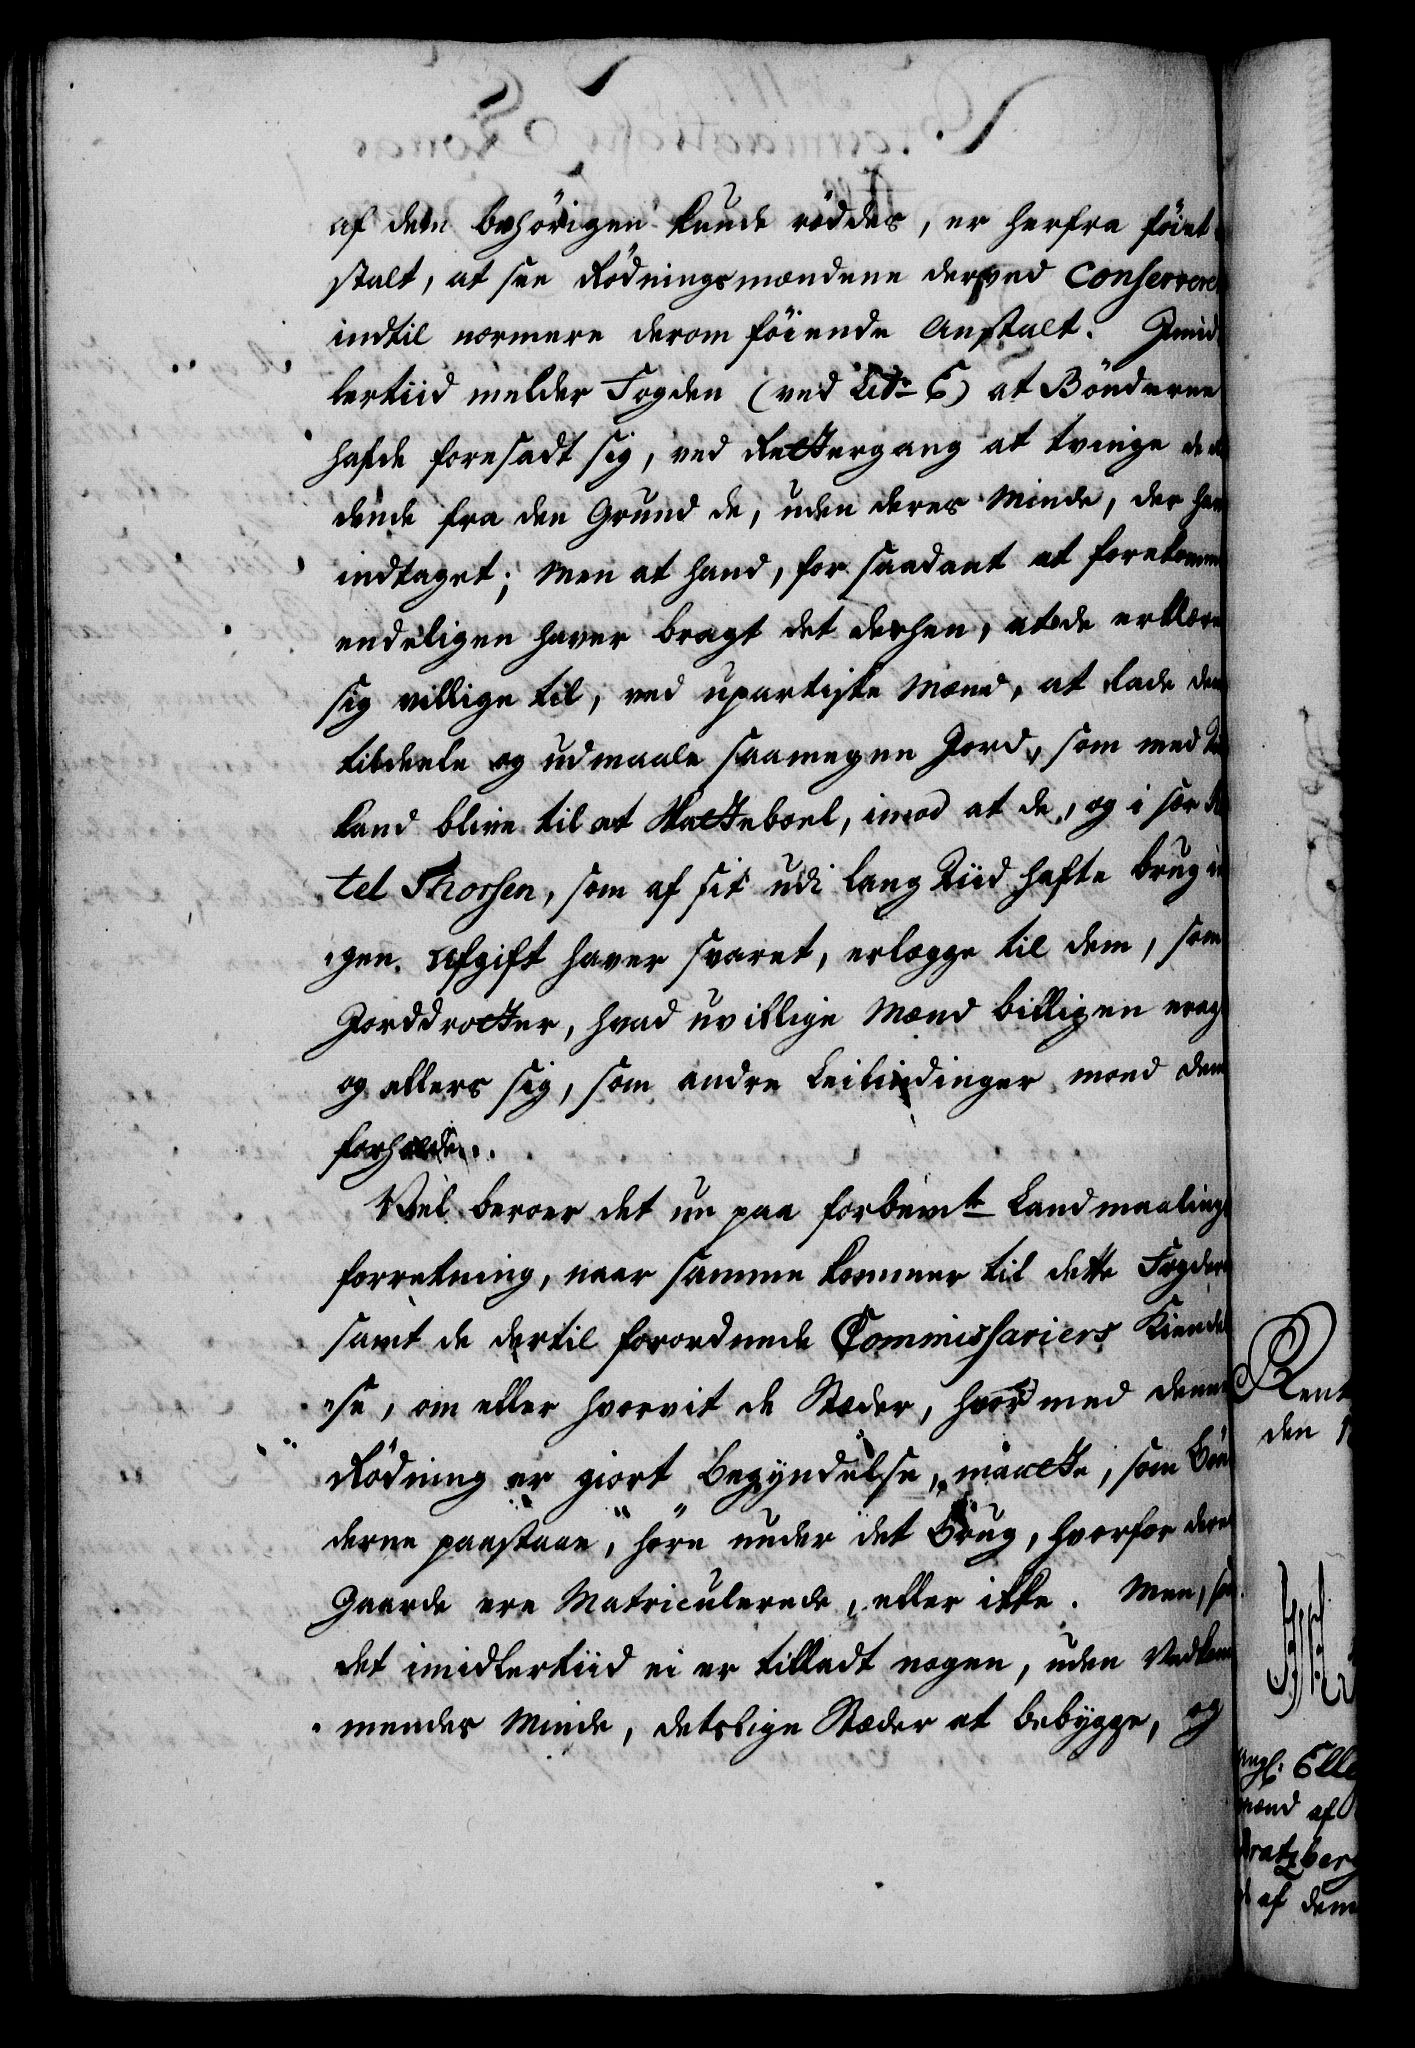 af dem behörigen kunde röddes, er herfra föiet
stalt, at see Rödningsmændene derved Conserver
indtil nærmere derom föiende Anstalt. Imid
lertiid melder Fogden (ved Litr. C) at Bönderne
hafde foresadt sig, ved Rettergang at tvinge
dende fra den Grund de, uden deres Minde, der
indtaget; Men at hand, for saadant at forekomm
endeligen haver bragt det derhen, at de erklære
sig villige til, ved upartiske Mænd, at lade dem
tildeele og udmaale saamegen Jord, som med
kand blive til at Skatteboel, imod at de, og i sær
tel Thorsen, som af sit udi lang Tiid hafte brug
gen Afgift haver svaret, erlegge til dem, som
Jorddrotter, hvad uvillige Mænd billigen
og ellers sig, som andre Leilændinger mod dem
forholde.
Vel beroer det nu paa forbemte Landmaalings
forretning, naar samme kommer til dette Fogderi
samt de dertil forordnede Commissariers Kiendel
se, om eller hvorvit de Stæder, hvor med denne
Rödning er giort Begyndelse, maatte, som Bön
derne paastaae, höre under det Brug, hvorfor deres
Gaarde ere Matriculerede, eller ikke. Men,
det imidlertiid ei er tilladt nogen, uden Vedkom
mendes Minde, detslige Stæder at bebygge, og
Rent
den
Elle
mænd af
Kratzberg
af dem